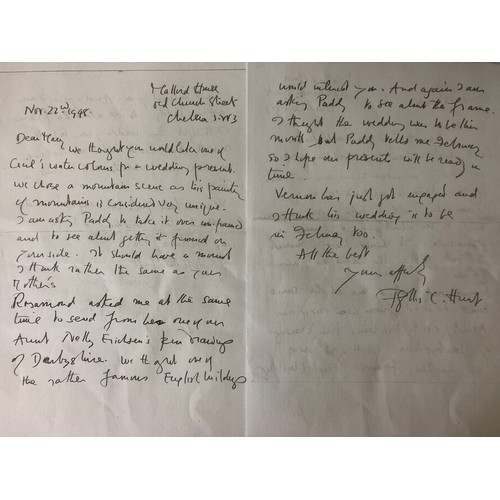 Mallord House
Old Church Street
Chelsea S.W3
Nov. 22nd 1948.
Dear Mary
we thought you would like one of
Cecil's water colours for a wedding present.
We chose a mountain scene as his painting
of mountains is considered very unique.
I am asking Paddy to take it over un-framed
and to see about getting it framed on
your side. It should have a mount
I think rather the same as your
Mother's
Rosamond asked me at the same
time to send from her one of our
Aunt Nelly Erichsen's pen drawings
of Derbyshire. We thought one of
the rather famous English buildings
would interest you. And again I am
asking Paddy to see about the frame.
I thought the wedding was to be this
month but Paddy tells me February
so I hope our presents will be ready in
time.
Vernon has just got engaged and
I think his wedding is to be
in February too.
All the best
Yours affectly
Phyllis C. Hunt